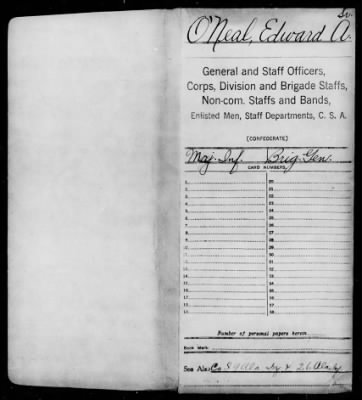 O'Neal, Edward A.
General and Staff Officers,
Corps, Division and Brigade Staffs,
Non-com. Staffs and Bands,
Enlisted Men, Staff Departments, C. S. A.
(CONFEDERATE)
Maj. Inf. Brig. Gen.
CARD NUMBERS.
1 20
2 21
3 22
4 23
5 24
6 25
7 26
8 27
9 28
10 29
11 30
12 31
13 32
14 33
15 34
16 35
17 36
18 37
19 38
Number of personal papers herein
Book Mark:
See Also Co 9 Ala Inf & 26 Ala Inf